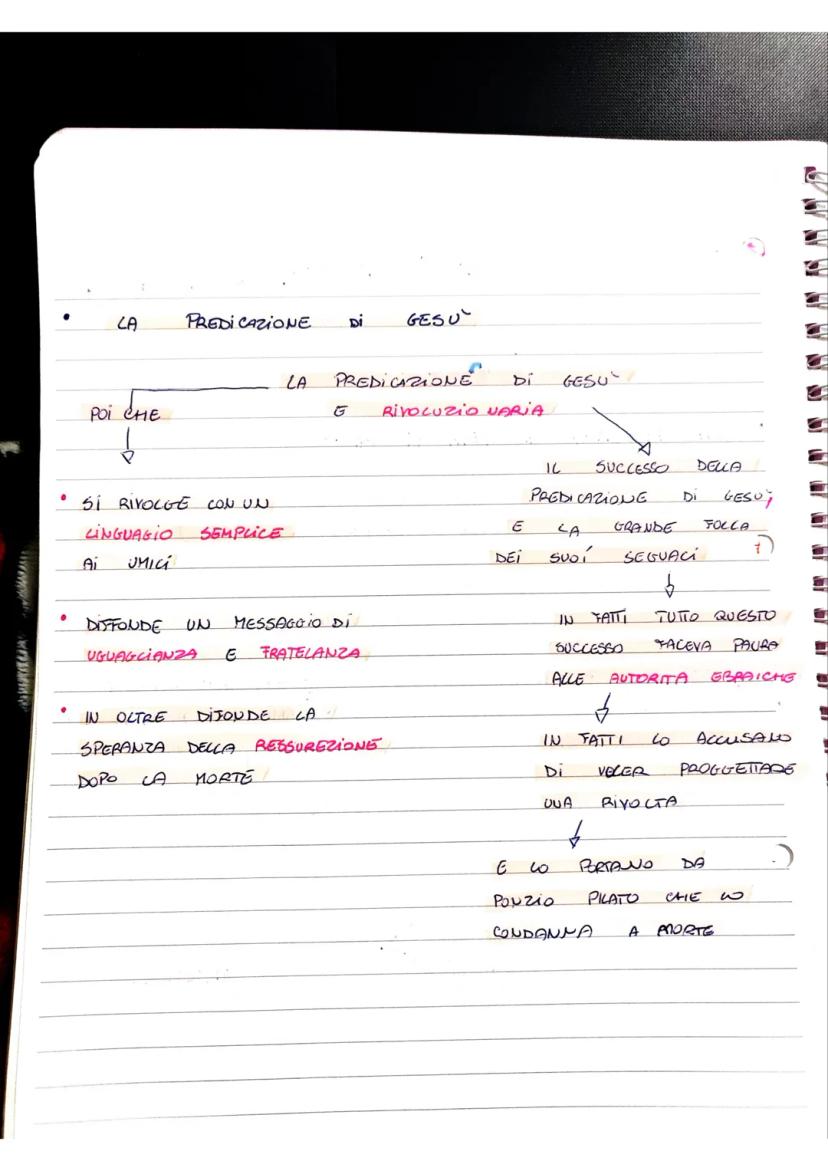 • LA PREDICAZIONE Di GESU`
LA PREDICAZIONE Di GESU`
E RIVOLUZIONARIA
POI CHE
• Si RIVOLGE CON UN
LINGUAGIO SEMPLICE
Ai UMICI
• DIFFONDE UN MESSAGGIO Di
UGUAGLIANZA E FRATELANZA
• IN OLTRE DIFONDE LA
SPERANZA DELLA RESSUREZIONE
DOPO LA MORTE
IL SUCCESSO DELLA
PREDICAZIONE Di GESU`
E LA GRANDE FOLLA
DEI SUOI SEGUACI
IN FATTI TUTTO QUESTO
SUCCESSO FACEVA PAURA
ALLE AUTORITA EBRAICHE
IN FATTI LO ACCUSANO
Di VOLER PROGGETTARE
UNA RIVOLTA
E LO PORTANO DA
PONZIO PILATO CHE LO
CONDANNA A MORTE